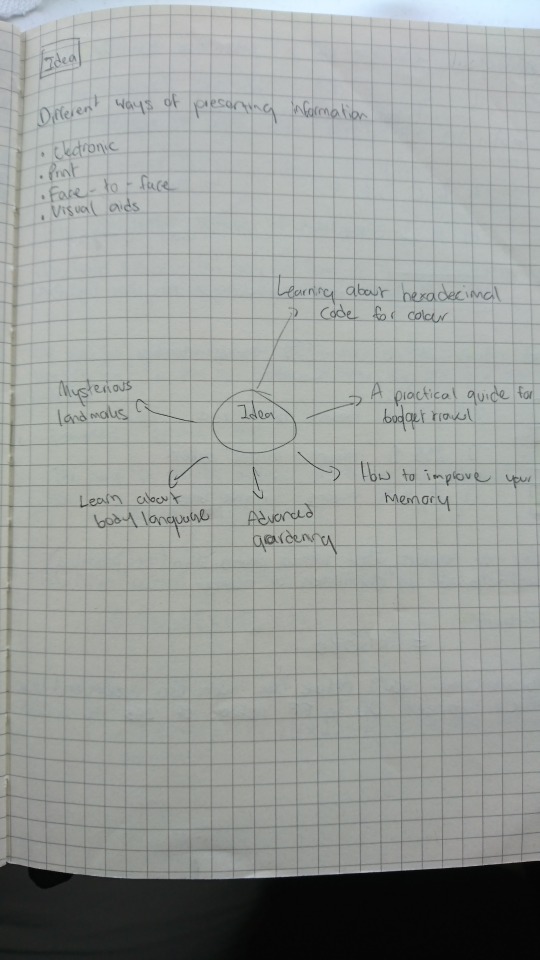 Idea
Different ways of presenting information
• Electronic
• Print
• Face-to-face
• Visual aids
Learning about hexadecimal
code for colour
Mysterious
landmarks
Idea
A practical guide for
budget travel
How to improve your
Memory
Learn about
body language
Advanced
gardening